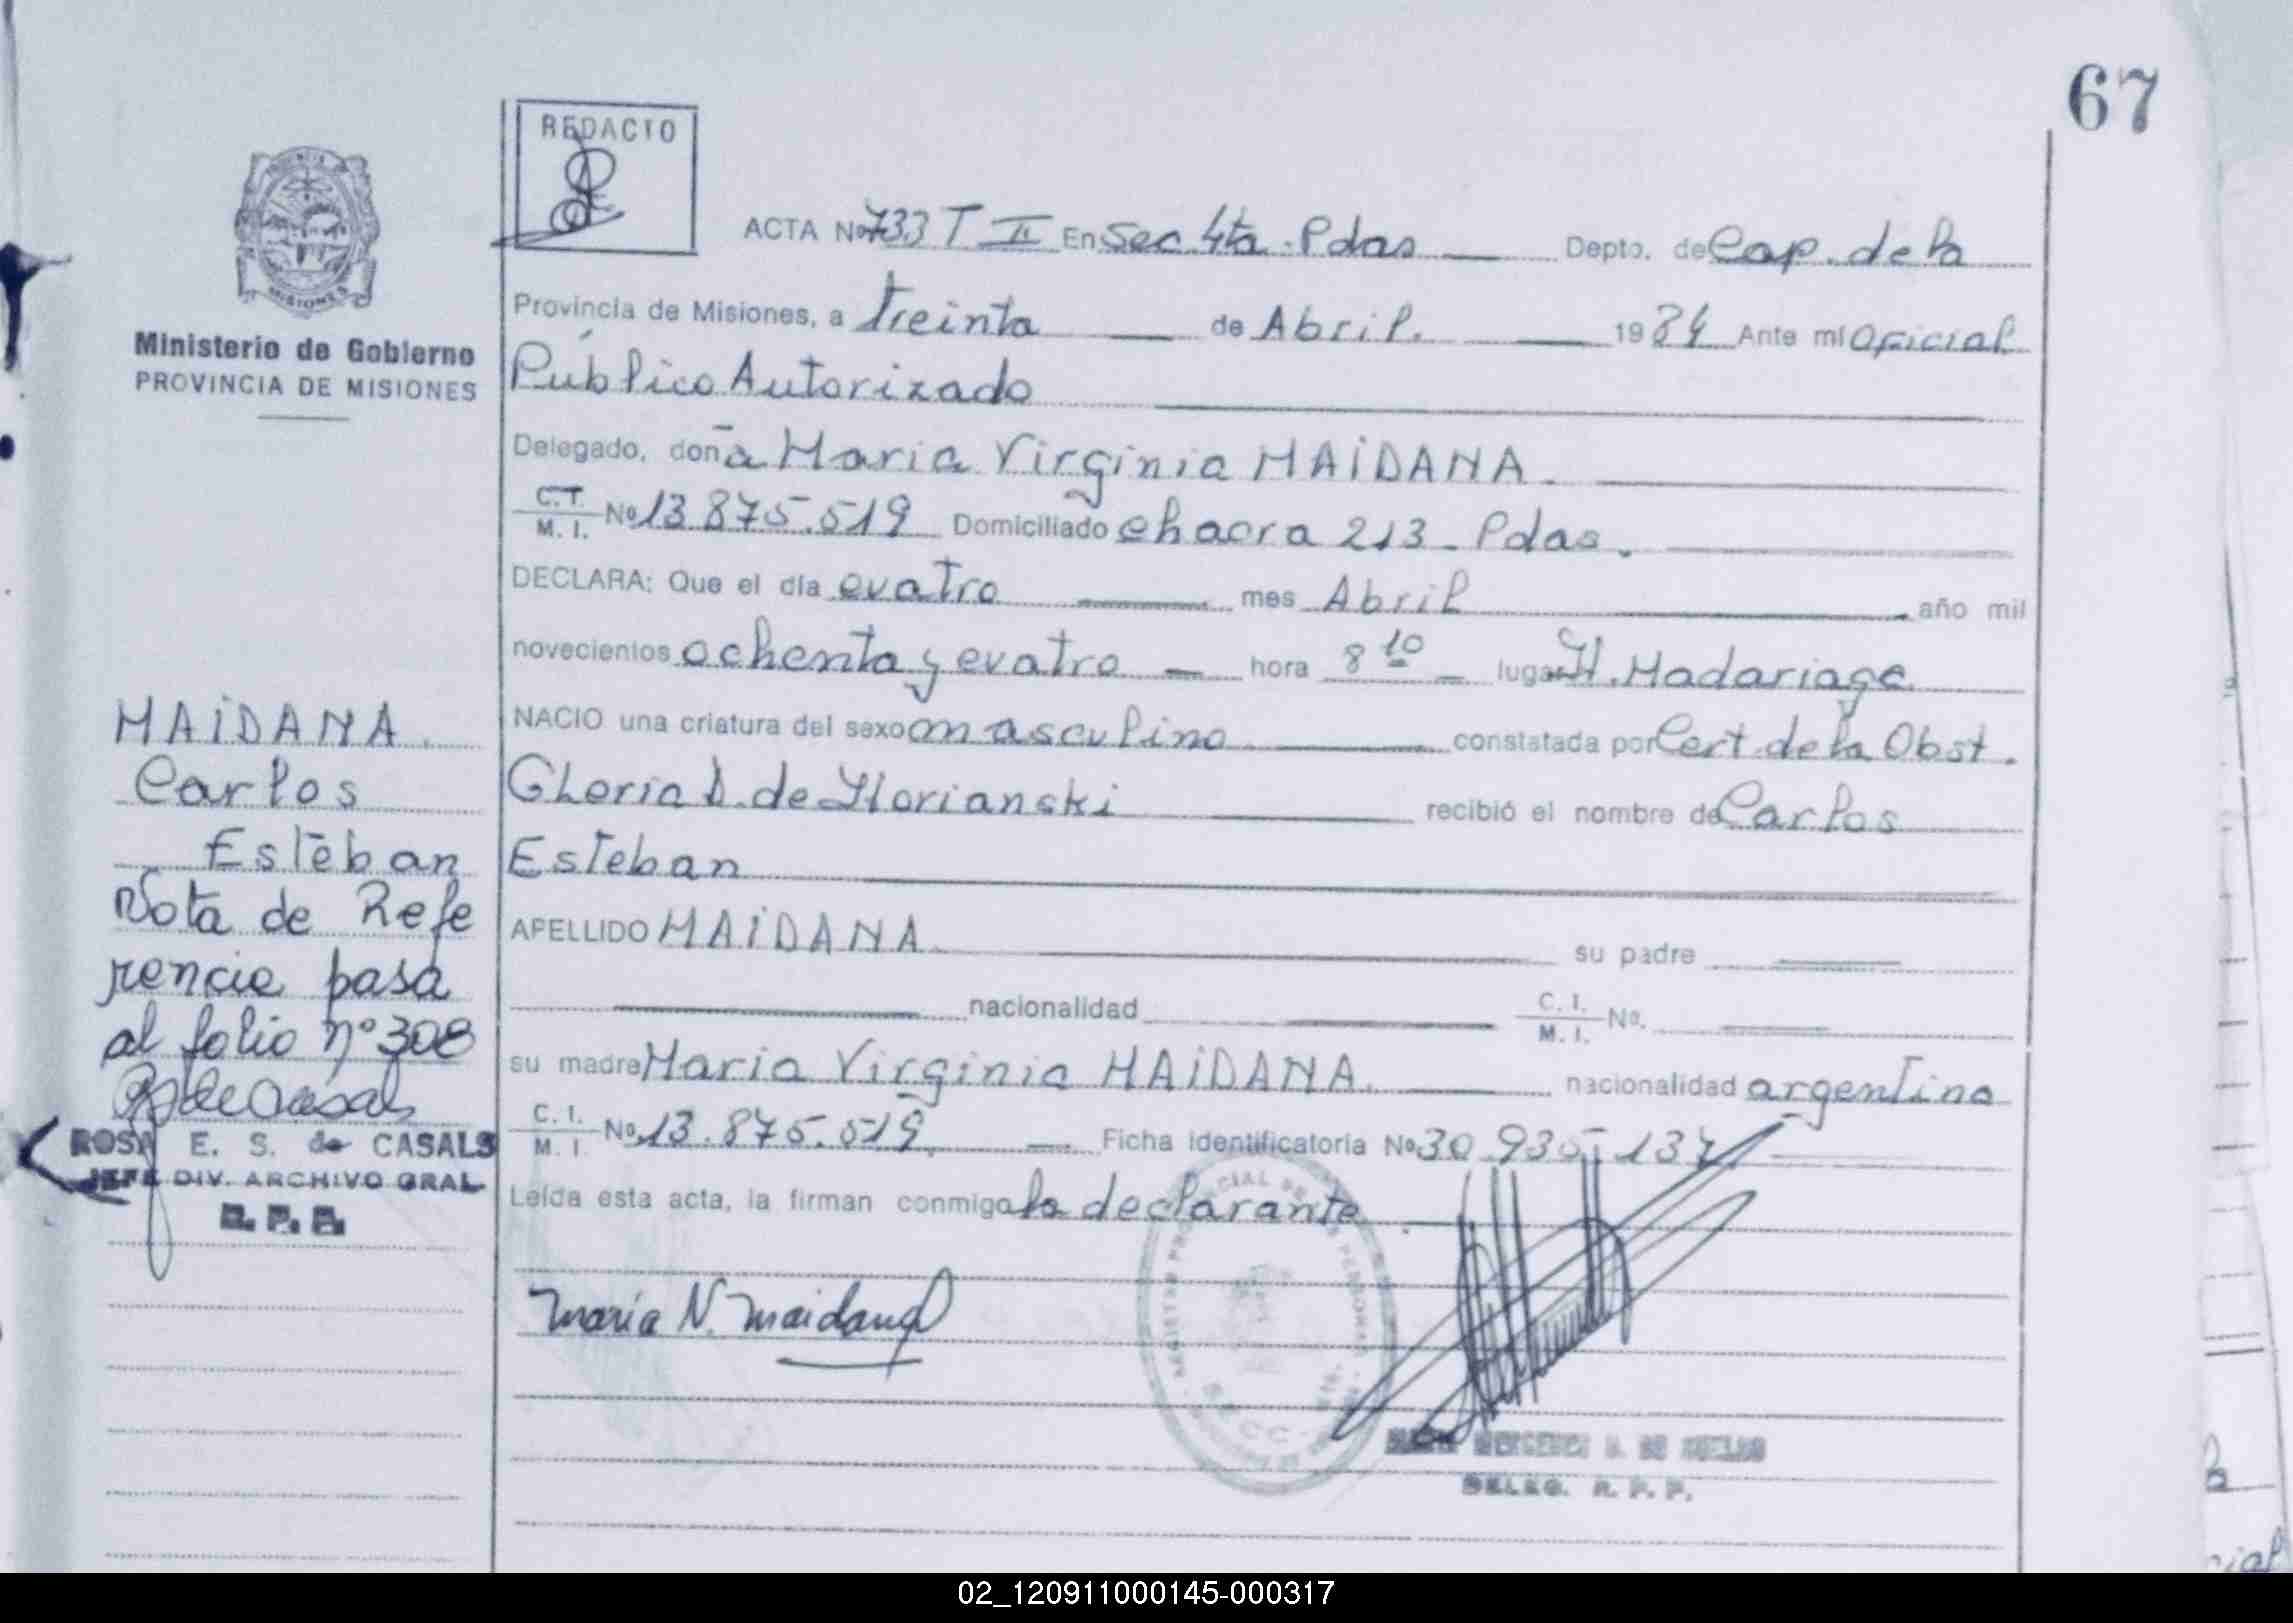 67
REDACTO
ACTA Nº 733 T II En Sec 4ta. Pdas Depto. de Cap. de la
Provincia de Misiones, a Treinta de Abril. 1984 Ante mí Oficial
Ministerio de Gobierno
PROVINCIA DE MISIONES
Público Autorizado
Delegado, doña Maria Virginia MAIDANA.
C.I.
M. I. Nº 13 875.519 Domiciliado chacra 213 - Pdas.
DECLARA: Que el día cuatro mes Abril año mil
novecientos ochenta y cuatro hora 8 10 lugar H. Madariaga
NACIO una criatura del sexo masculino constatada por Cert. de la Obst.
Gloria D. de Florianski recibió el nombre de Carlos
Esteban
APELLIDO MAIDANA su padre
nacionalidad C. I.
M. I. Nº.
su madre Maria Virginia MAIDANA. nacionalidad argentina
C. I.
M. I. Nº 13.875.519. Ficha identificatoria Nº 30.935.137
Leída esta acta, la firman conmigo la declarante
MAIDANA.
Carlos
Esteban
Nota de Refe
rencia pasa
al folio nº 308
RdeCasals
ROSA E. S. de CASALS
JEFE DIV. ARCHIVO GRAL
R. P. P.
Maria V. Maidana
DELEG. R. P. P.
02_120911000145-000317